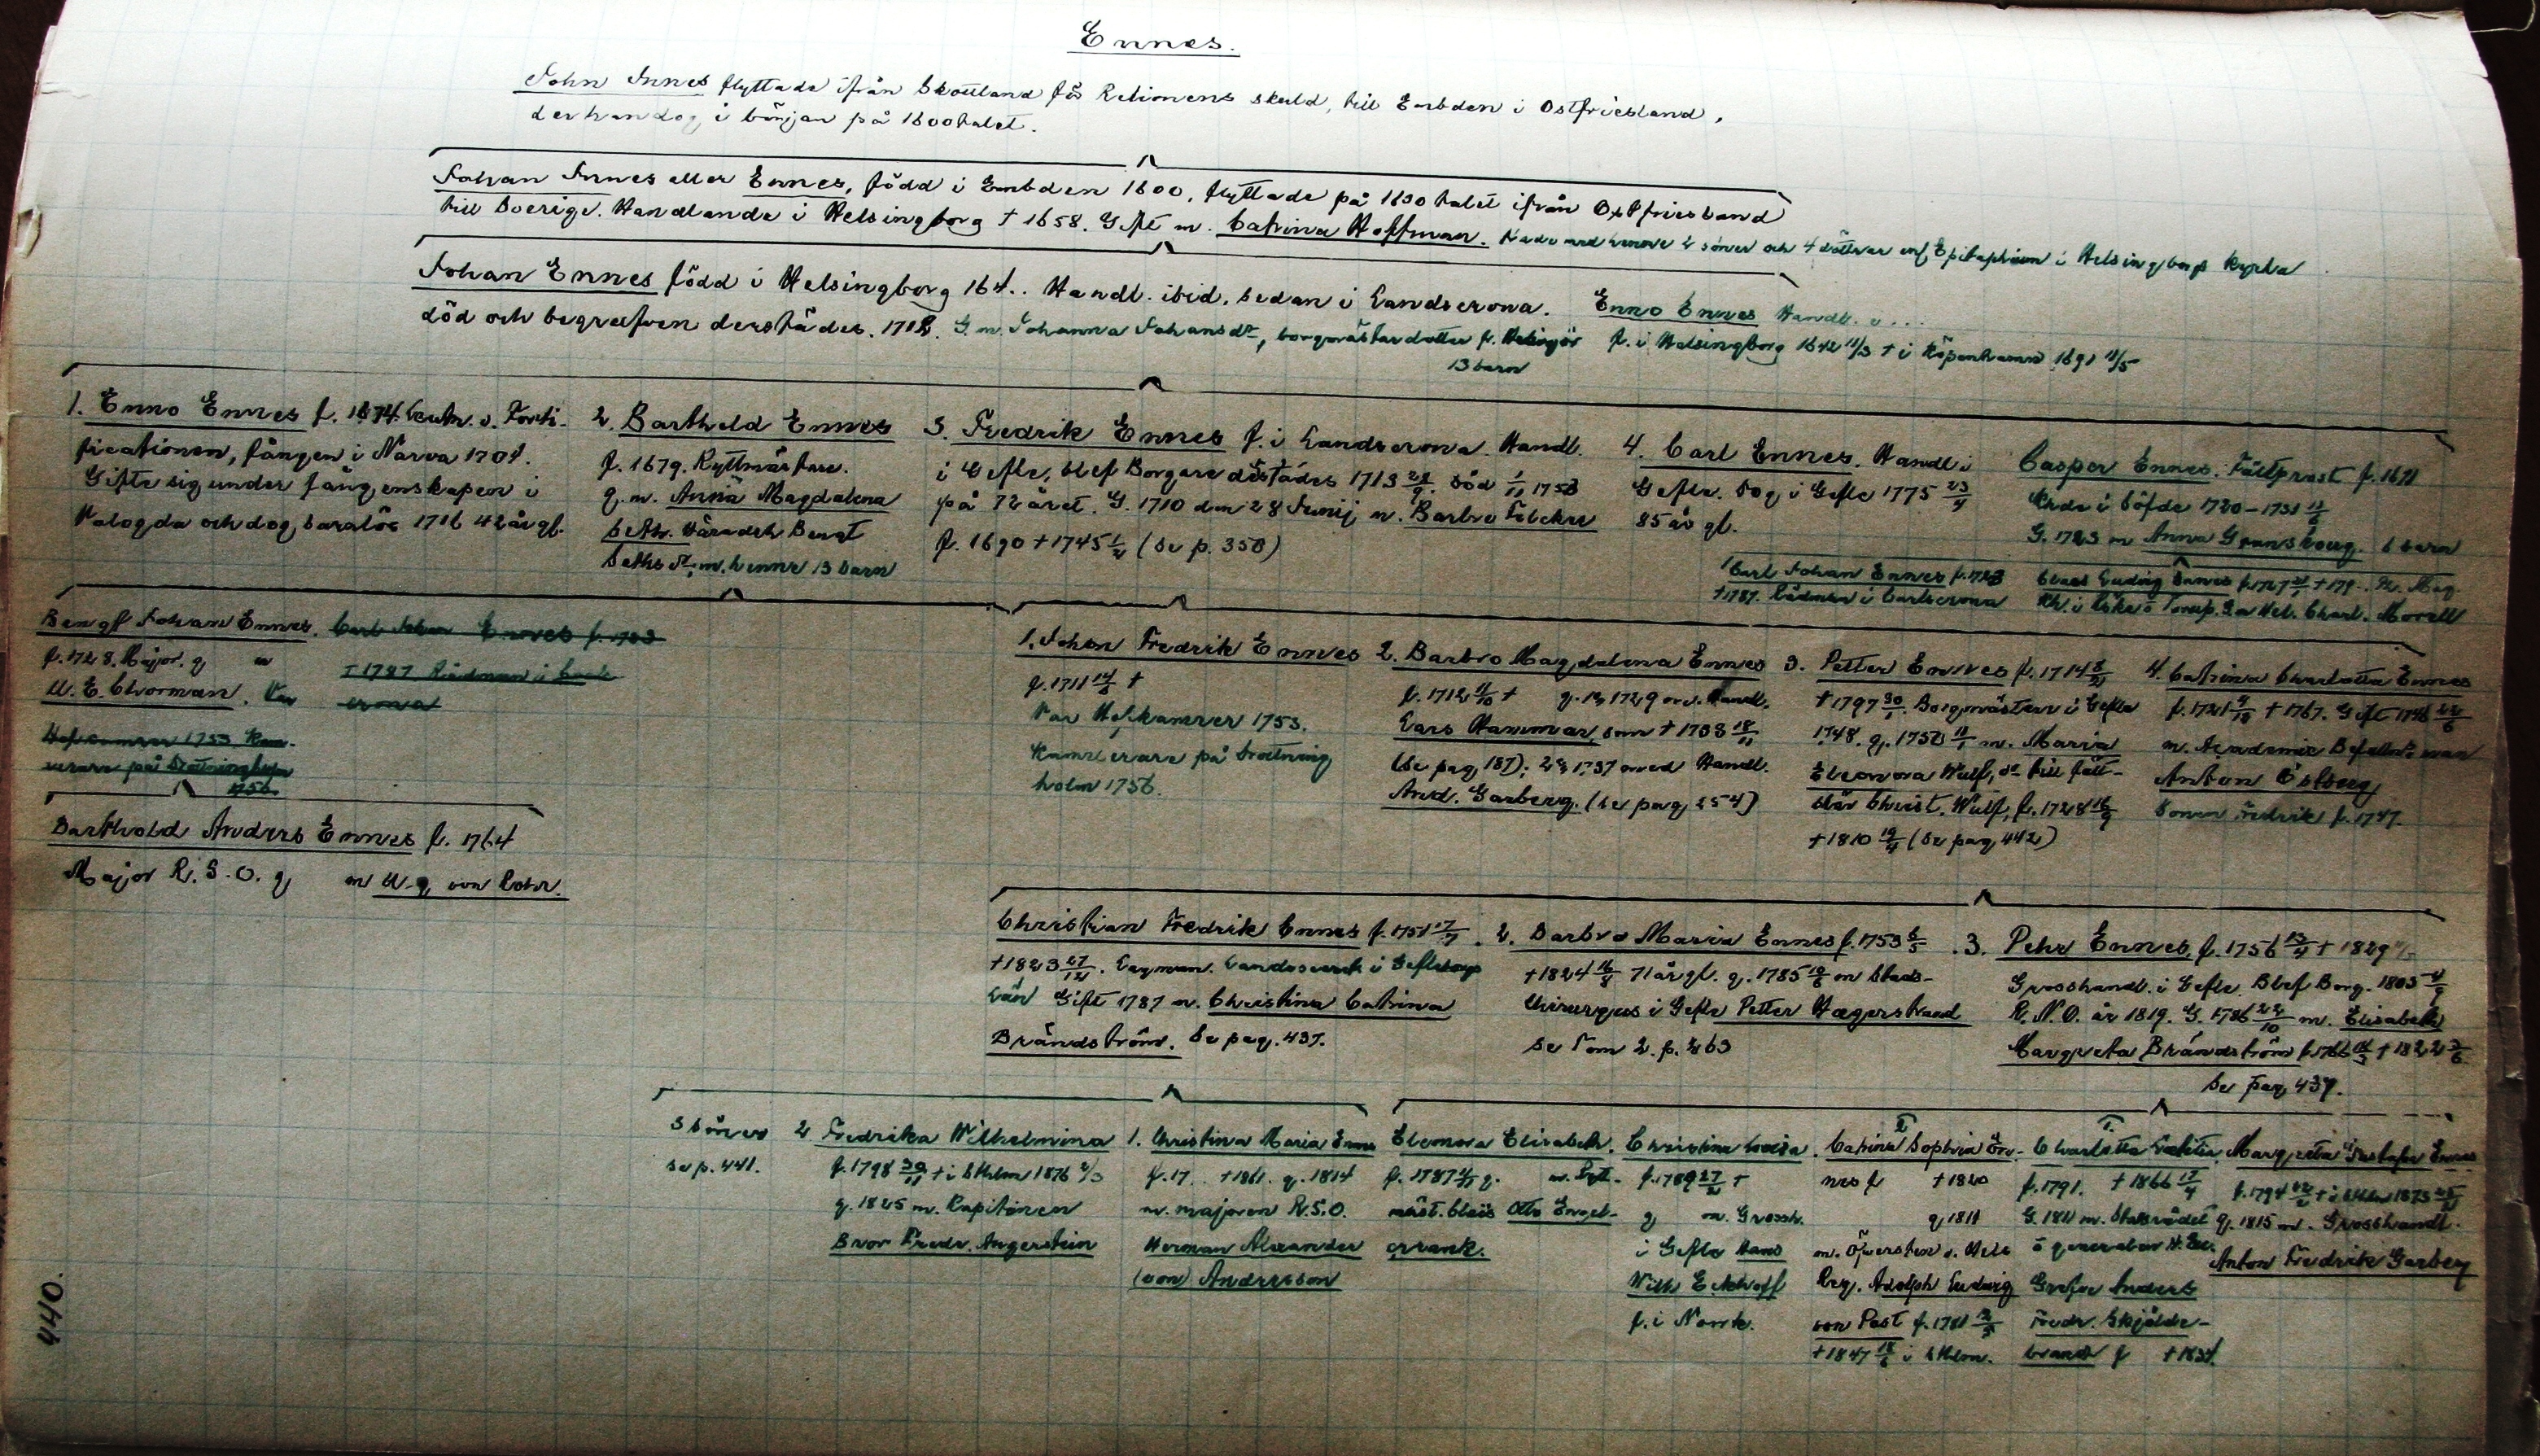 Ennes.
John Innes flyttade ifrån Skottland för Relionens skuld, till Embden i Ostfriesland,
der han dog i början på 1600talet.
Johan Innes eller Ennes, född i Embden 1600, flyttade på 1630 talet ifrån Ostfriesland
till Sverige. Handlande i Helsingborg † 1658. Gift m. Catrina Hoffman. Hade med henne 2 söner och 4 döttrar enl. Epitaphium i Helsingborgs kyrka
Johan Ennes född i Helsingborg 164.. Handl. ibid. sedan i Landscrona.
död och begrafven derstädes. 1712. G. m. Johanna Johansdr, borgmästardotter fr. Helsingör
13 barn
Enno Ennes Handl. i ...
f. i Helsingborg 1642 11/3 † i Köpenhamn 1691 11/5
1. Enno Ennes f. 1674. Leutn. v. Forti-
ficationen, fången i Narva 1704.
Gifte sig under fångenskapen i
Valogda och dog barnlös 1716 42 år gl.
2. Barthold Ennes
f. 1679. Ryttmästare.
g. m. Anna Magdalena
Seth. Häradsh Bengt
Seths dr, m. henne 13 barn
3. Fredrik Ennes f. i Landscrona. Handl.
i Gefle, blef Borgare dästädes 1713 28/9. död 1/11 1753
på 72 året. G. 1710 den 28 Junij m. Barbro
f. 1690 † 1745 1/2 (Se p. 358)
4. Carl Ennes. Handl i
Gefle. Dog i Gefle 1775 23/4
85 år gl.
Casper Ennes. Fältprost f. 1691
Khde i Söfde 1720-1731
G. 1723 m Anna Gransborg. 6 barn
Carl Johan Ennes f. 1723
† 1787. Rådman i Carlscrona
Claes Ludvig Ennes f. 1727 † 179.. Mag.
Kh. i Torup. G m Hel. Charl. Morell
Bengt Johan Ennes.
f. 1728. Major. g m
U. E. Chorman. Var
Hofkamrer 1753 Kam-
rerare på Drottningholm
1756.
Carl Johan Ennes f. 1723
† 1787 Rådman i Carls
crona
1. Johan Fredrik Ennes
f. 1711 14/6 †
Var Hofkamrer 1753.
Kamrerare på Drottning
holm 1756.
2. Barbro Magdalena Ennes
f. 1712 11/10 † g. 1o 1729 m. Handl.
Lars Hammar, som † 1738 18/11
(se pag 187); 2o 1737 med Handl.
And. Garberg. (se pag. 254)
3. Petter Ennes f. 1714 8/2
† 1797 30/1. Borgmästare i Gefle
1748. g. 1750 11/1 m. Maria
Eleonora Wulf, dr till fält-
skär Christ. Wulf, f. 1728 16/9
† 1810 19/4 (se pag. 442)
4. Catrina Charlotta Ennes
f. 1721 9/12 † 1767. Gift 1746 22/6
m. Academie Befallnsman
Anton Östberg
Sonen Fredrik f. 1747.
Barthold Anders Ennes f. 1764
Major R. S. O. g m U. g. von Rohr.
Christian Fredrik Ennes f. 1751 17/7.
† 1823 27/12. Lagman. Landssecret i Gefleborgs
Län Gift 1787 m. Christina Catrina
Brändström. Se pag. 437.
2. Barbro Maria Ennes f. 1753 6/5
† 1824 16/8 71 år gl. g. 1785 19/6 m Stads-
chirurgus i Gefle Petter Hagerstrand
Se Tom 2. p. 263
3. Pehr Ennes, f. 1756 13/4 † 1829
Grosshandl. i Gefle. Blef Borg. 1805 4/9
R. N. O. år 1819. G. 1786 22/10 m. Elisabeth
Margreta Brändström f. 1766 16/3 † 1822 3/6
Se pag. 437.
3 söner
se p. 441.
2 Fredrika Wilhelmina
f. 1798 30/11 † i Sthlm 1876 2/3
g. 1825 m. Kapitenen
Bror Fredr. Angerstein
1. Christina Maria Ennes
f. 17.. † 1861. g. 1814
m. majoren R. S. O.
Herman Alexander
(von) Andersson
Eleonora Elisabeth.
f. 1787 4/11 g. m. Ryt-
mäst. Otto Engel-
crrank.
Christina Lovisa.
f. 1789 27/2 †
g m. Grossh.
i Gefle Hans
Wilh Eckhoff
f. i Norrk.
Catrina Sophia En-
nes f † 1820
g 1811
m. Öfversten v. Hels
Reg. Adolph Ludvig
von Post f. 1781 12/5
† 1847 18/6 i Sthlm.
Charlotta Lucretia
f. 1791. † 1866 17/4
G. 1811 m. Statsrådet
o generalen H. Exc.
Grefve Anders
Fredr. Skjölde-
brand f † 1834.
Margreta Gustafva Ennes
f. 1794 † i Sthlm 1873
g. 1815 m. Grosshandl.
Anton Fredrik Garberg
440.